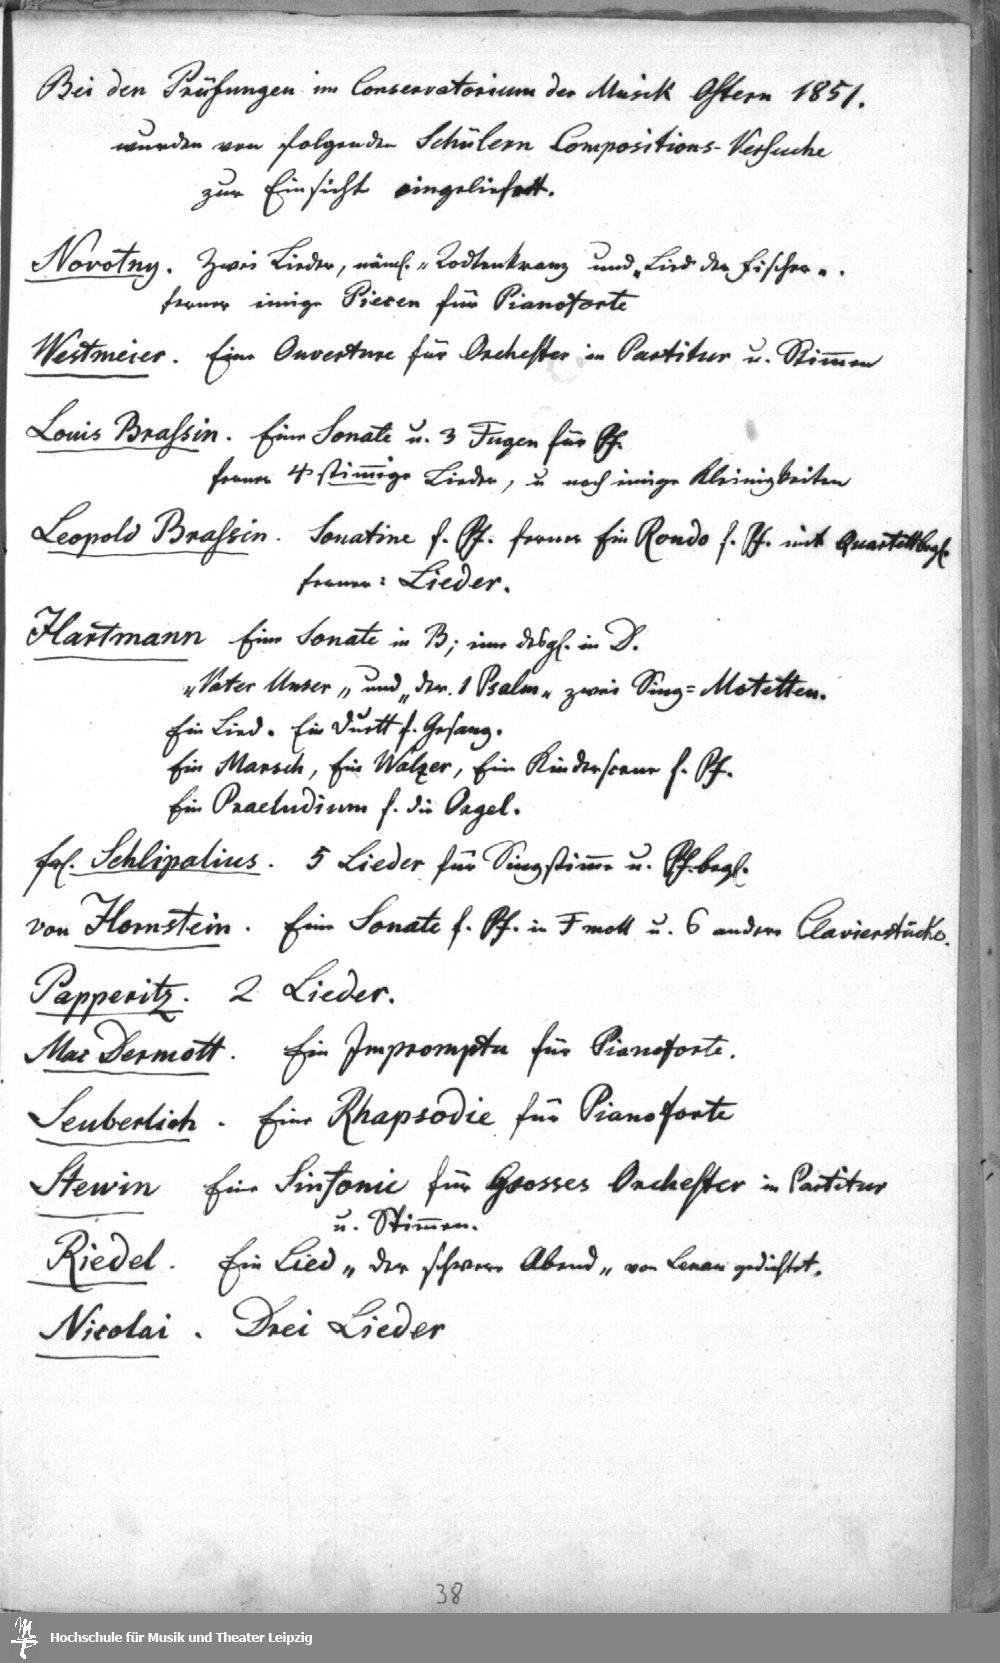 Bei den Prüfungen im Conservatorium der Musik Ostern 1851.
wurden von folgenden Schülern Compositions-Versuche
zur Einsicht eingeliefert.
Novotny. Zwei Lieder, näml. „Todtenkranz und „Lied der Fischer„.
ferner einige Piecen für Pianoforte
Westmeier. Eine Ouverture für Orchester in Partitur u. Stimmen
Louis Brassin. Eine Sonate u. 3 Fugen für Pf.
ferner 4 stimmige Lieder, u noch einige Kleinigkeiten
Leopold Brassin. Sonatine f. Pf. ferner Ein Rondo f. Pf. mit Quartettbegl.
ferner: Lieder.
Hartmann Eine Sonate in B; eine desgl. in D.
„Vater Unser„ und „der 1 Psalm„ zwei Sing=Motetten.
Ein Lied. Ein Duett f. Gesang.
Ein Marsch, Ein Walzer, Eine Kinderscene f. Pf.
Ein Praeludium f. die Orgel.
Frl. Schlipalius. 5 Lieder für Singstimme u. Pf.begl.
von Hornstein. Eine Sonate f. Pf. in F moll u. 6 andere Clavierstücke.
Papperitz. 2 Lieder.
Mac Dermott. Ein Impromptu für Pianoforte.
Seuberlich. Eine Rhapsodie für Pianoforte
Stewin Eine Sinfonie für Grosses Orchester in Partitur
u. Stimmen.
Riedel. Ein Lied „der schwere Abend„ von Lenau gedichtet.
Nicolai. Drei Lieder
38
Hochschule für Musik und Theater Leipzig